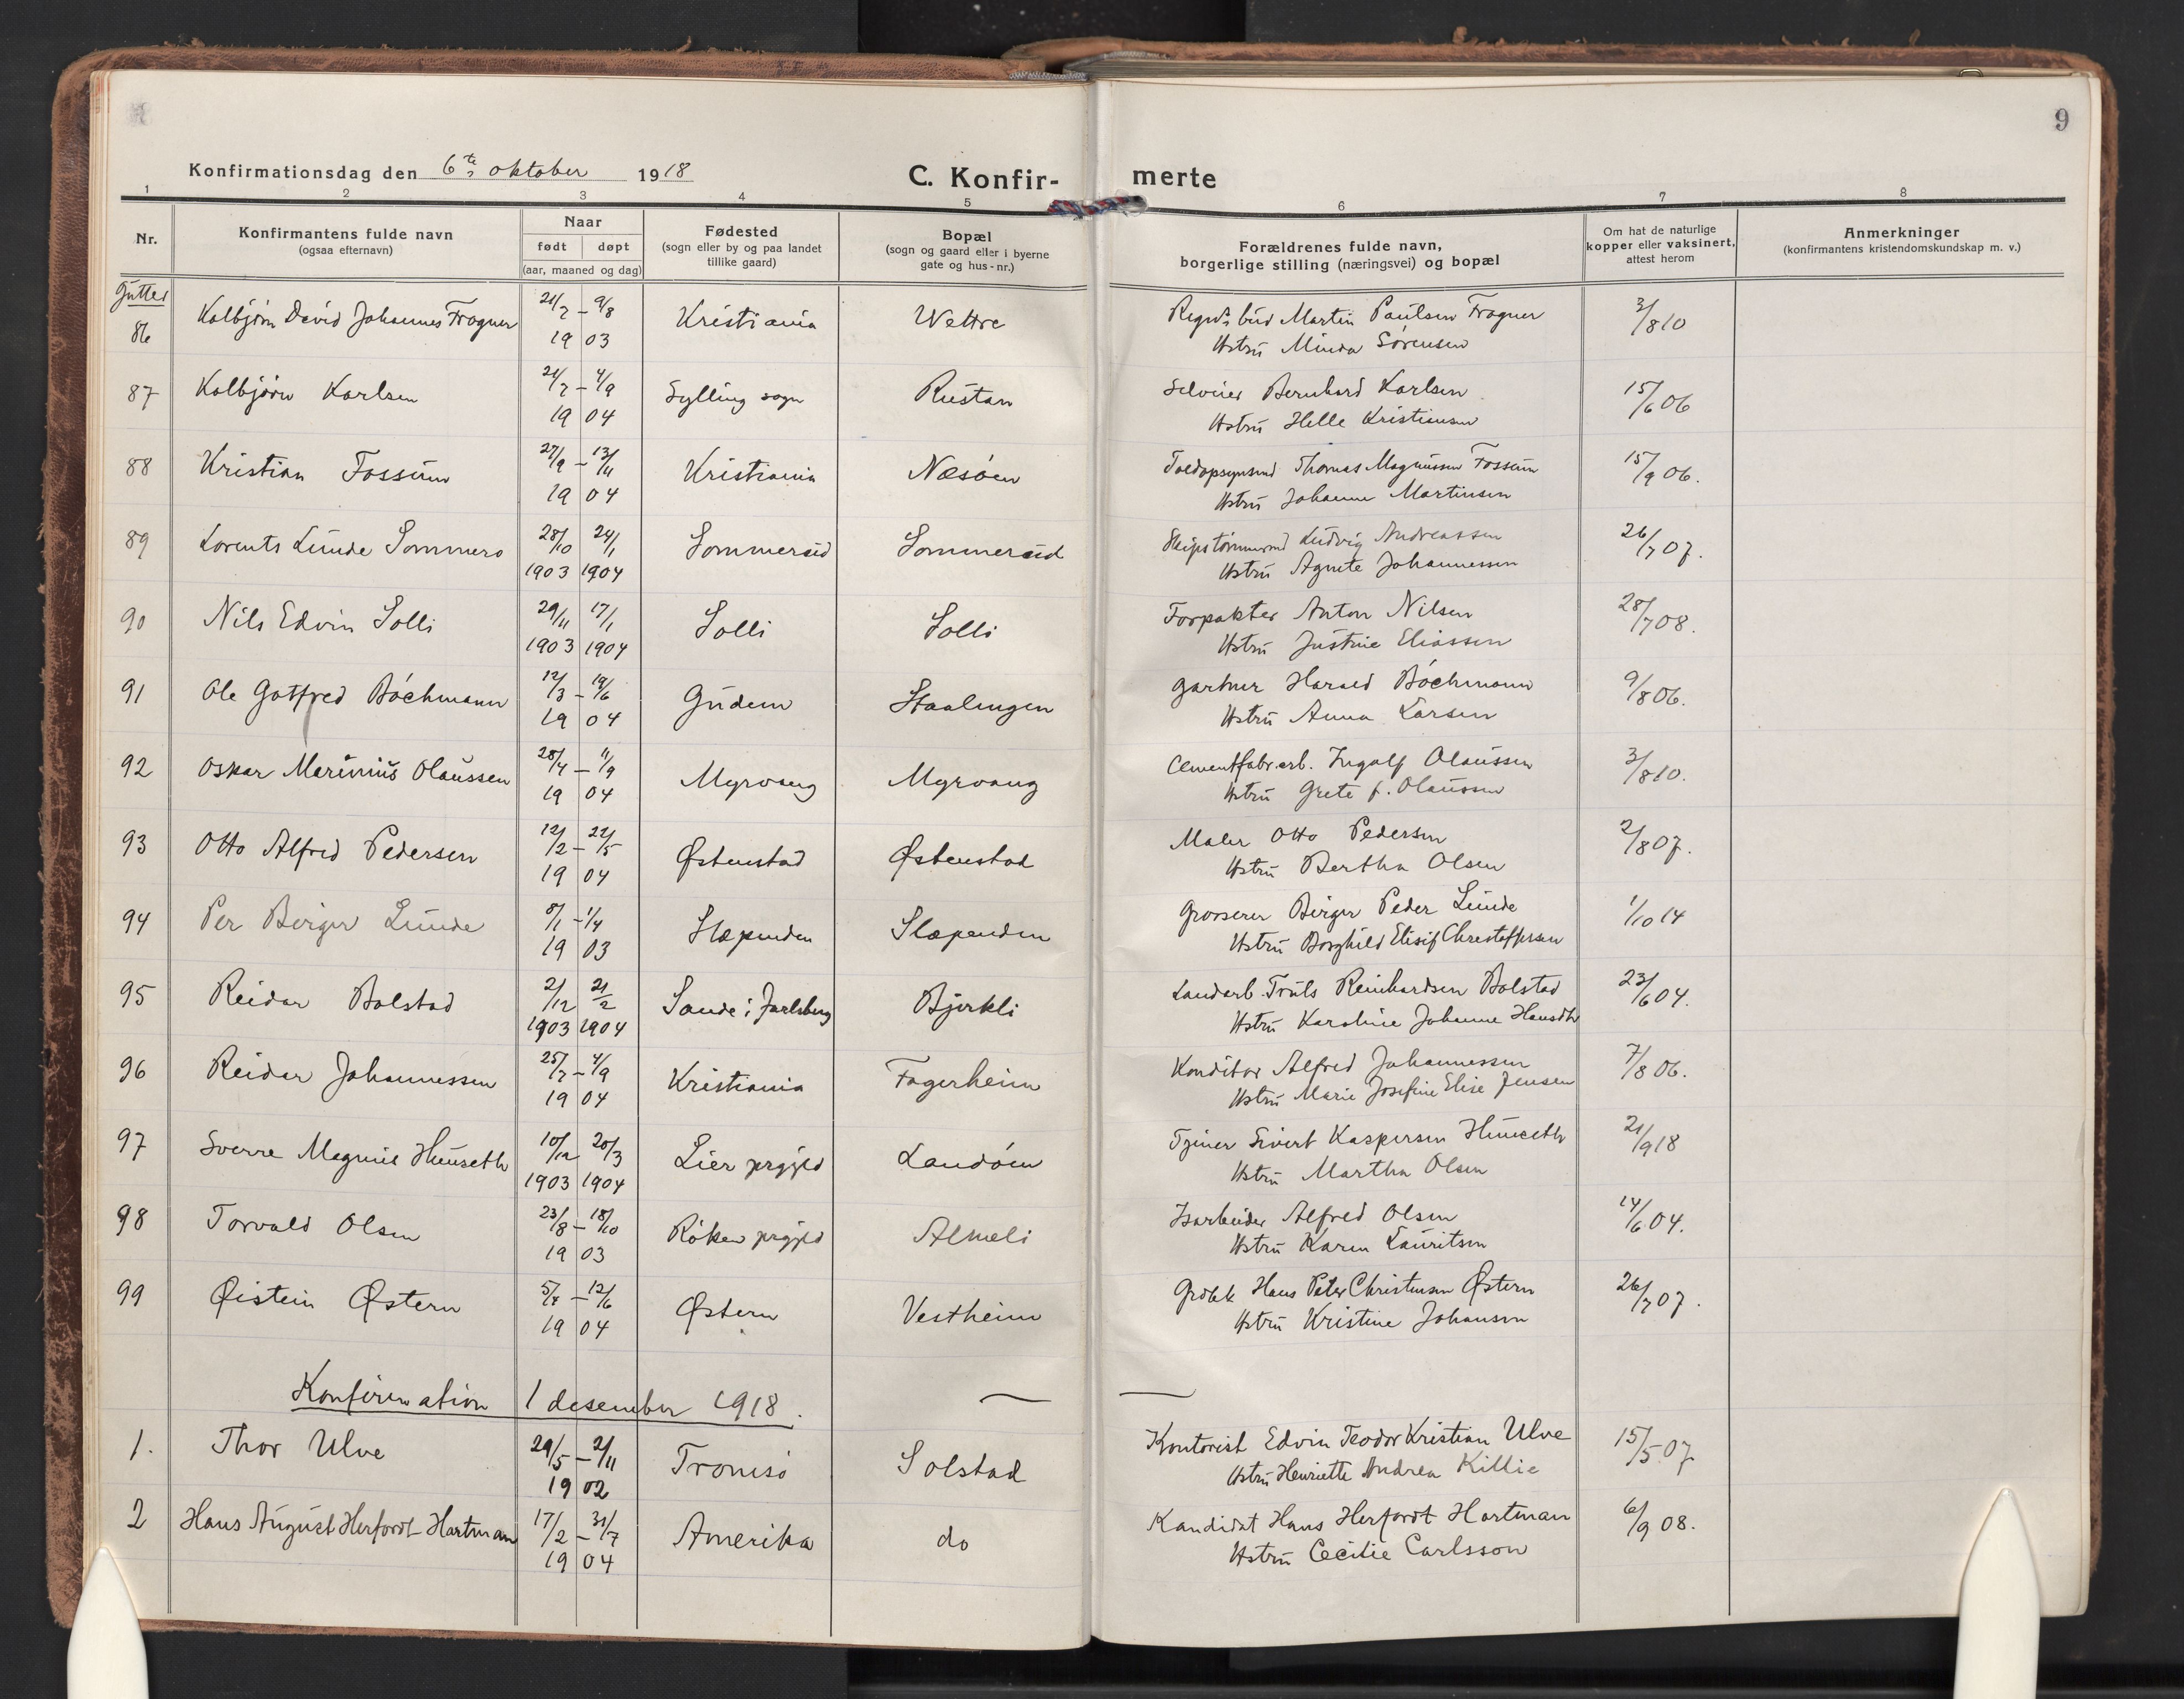 9
Konfirmationsdag den 6te oktober 1918
C. Konfir-
merte
1 2 3 4 5 6 7 8
Nr.
Konfirmantens fulde navn
(ogsaa efternavn)
Naar
født døpt
(aar, maaned og dag)
Fødested
(sogn eller by og paa landet
tillike gaard)
Bopæl
(sogn og gaard eller i byerne
gate og hus-nr.)
Forældrenes fulde navn,
borgerlige stilling (næringsvei) og bopæl
Om hat de naturlige
kopper eller vaksinert,
attest herom
Anmerkninger
(konfirmantens kristendomskundskap m. v.)
Gutter
86 Kolbjørn David Johannes Frogner 21/7 – 9/8 Kristiania Wettre Martin Paulsen Frogner 3/8 10
1903 Hstru Minda Sørensen
87 Kolbjørn Karlsen 21/7 – 4/9 Sylling sogn Rustan Selveier Bernhard Karlsen 15/6 06
1904 Hstru Helle Kristiansen
88 Kristian Fossum 27/9 – 13/11 Kristiania Nesøen Toldopsynsmd Thomas Magnussen Fossum 15/9 06.
1904 Hstru Johanne Martinsen
89 Lorents Lunde Sommero 28/10 24/1 Sommerud Sommerud Skipstømmermd Ludvig Andreassen 26/7 07.
1903 1904 Hstru Agnete Johannessen
90 Nils Edvin Solli 29/11 17/1 Solli Solli Forpakter Anton Nilsen 28/7 08.
1903 1904 Hstru Justine Eliassen
91 Ole Gotfred Bóchmann 12/3 – 19/6 Gudem Staalengen Gartner Harald Bóchmann 9/8 06.
1904 Hstru Anna Larsen
92 Oskar Marinius Olaussen 28/4 – 11/9 Myrvang Myrvang Cementfabr.arb. Ingolf Olaussen 3/8 10.
1904 Hstru Grete f. Olaussen
93 Otto Alfred Pedersen 12/2 – 22/5 Østenstad Østenstad Maler Otto Pedersen 2/8 07.
1904 Hstru Bertha Olsen
94 Per Birger Lunde 8/1 – 1/4 Slæpenden Slæpenden Grosserer Birger Peder Lunde 1/10 14
1903 Hstru Borghild Elisif Christoffersen
95 Reidar Bolstad 2/12 21/2 Sande i Jarlsberg Bjerkli Landarb. Truls Reinhardsen Bolstad 23/6 04.
1903 1904 Hstru Karoline Johanne Hansdtr
96 Reidar Johannessen 25/7 – 4/9 Kristiania Fagerheim Konditor Alfred Johannessen 7/8 06.
1904 Hstru Marie Josefine Elise Jensen
97 Sverre Magnus Hunseth 10/12 20/3 Lier prgjld Landóen Sivert Kaspersen Hunseth 21/9 18
1903 1904 Hstru Martha Olsen
98 Torvald Olsen 23/8 – 18/10 Róken prgjld Almeli Isarbeider Alfred Olsen 14/6 04.
1903 Hstru Karen Lauritsen
99 Øistein Østern 5/4 – 12/6 Østern Vestheim Grdbk Hans Peter Christensen Østern 26/7 07.
1904 Hstru Kristine Johansen
Konfirmation 1 desember 1918. — —
1. Thor Ulve 29/5 – 2/11 Tromsó Solstad Kontorist Edvin Teodor Kristian Ulve 15/5 07
1902 Hstru Henriette Andrea Killie
2 Hans August Herfordt Hartman 17/2 – 31/7 Amerika do Kandidat Hans Herfordt Hartman 6/9 08.
1904 Hstru Cecilie Carlsson